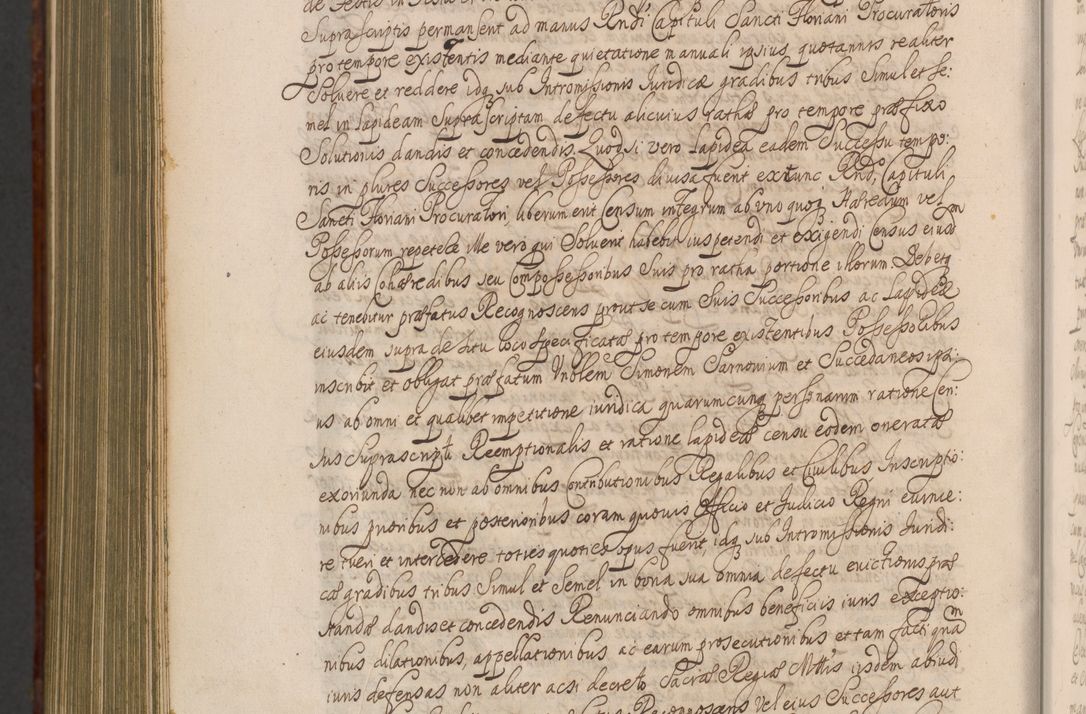 Suprascriptis permansent ad manus Rndi Capituli Sancti Floriani Procuratoris
pro tempore existentis mediante quietatione manuali ipsius quotannis realiter
Solvere et reddere idq sub Intromissionis Iuridicæ gradibus tribus Simul et Se:
mel in lapideam Suprascriptam defectu alicuius rathæ pro tempore præfixo
Solutionis dandis et concedendis. Quod si vero lapidea eadem Successu tempo:
ris in plures Successores vel Possessores divisa fuerit extunc Rndo Capituli
Sancti Floriani Procuratori, liberum erit Censum integrum ab uno quoq Hæredum vel
Possessorum repetere ille vero qui Solverit habebit ius petendi et exigendi Census eiusdem
ab aliis Cohæredibus seu Compossessoribus Suis pro ratha portione illorum. Debetq
ac tenebitur præfatus Recognoscens prout se cum Suis Successoribus ac lapideæ
eiusdem supra de situ loco specificatæ pro tempore existentibus Possessoribus
inscribit et obligat præfatum Nobilem Simonem Carnonium et Succedaneos ipsi:
us ab omni et qualibet impetitione iuridica quarumcunq personarum ratione Cen:
sus Suprascripti Reemptionalis et ratione lapideæ censu eodem oneratæ
exoriunda nec non ab omnibus Contributionibus Regalibus et Civilibus Inscriptio:
nibus prioribus et posterioribus coram quovis Officio et Iudicio Regni eurnie:
re tueri et intercedere toties quoties opus fuerit, idq sub Intromissionis Iuridi:
cæ gradibus tribus Simul et Semel in bona sua omnia defectu evictionis præ
standæ dandis et concedendis Renunciando omnibus beneficiis iuris exceptio:
nibus dilationibus, appellationibus ac earum prosecutionibus et tam facti quam
iuris defensas non aliter ac si decreto Sacræ Regiæ Mttis iisdem abiudi
Recognoscens vel eius Successores aut